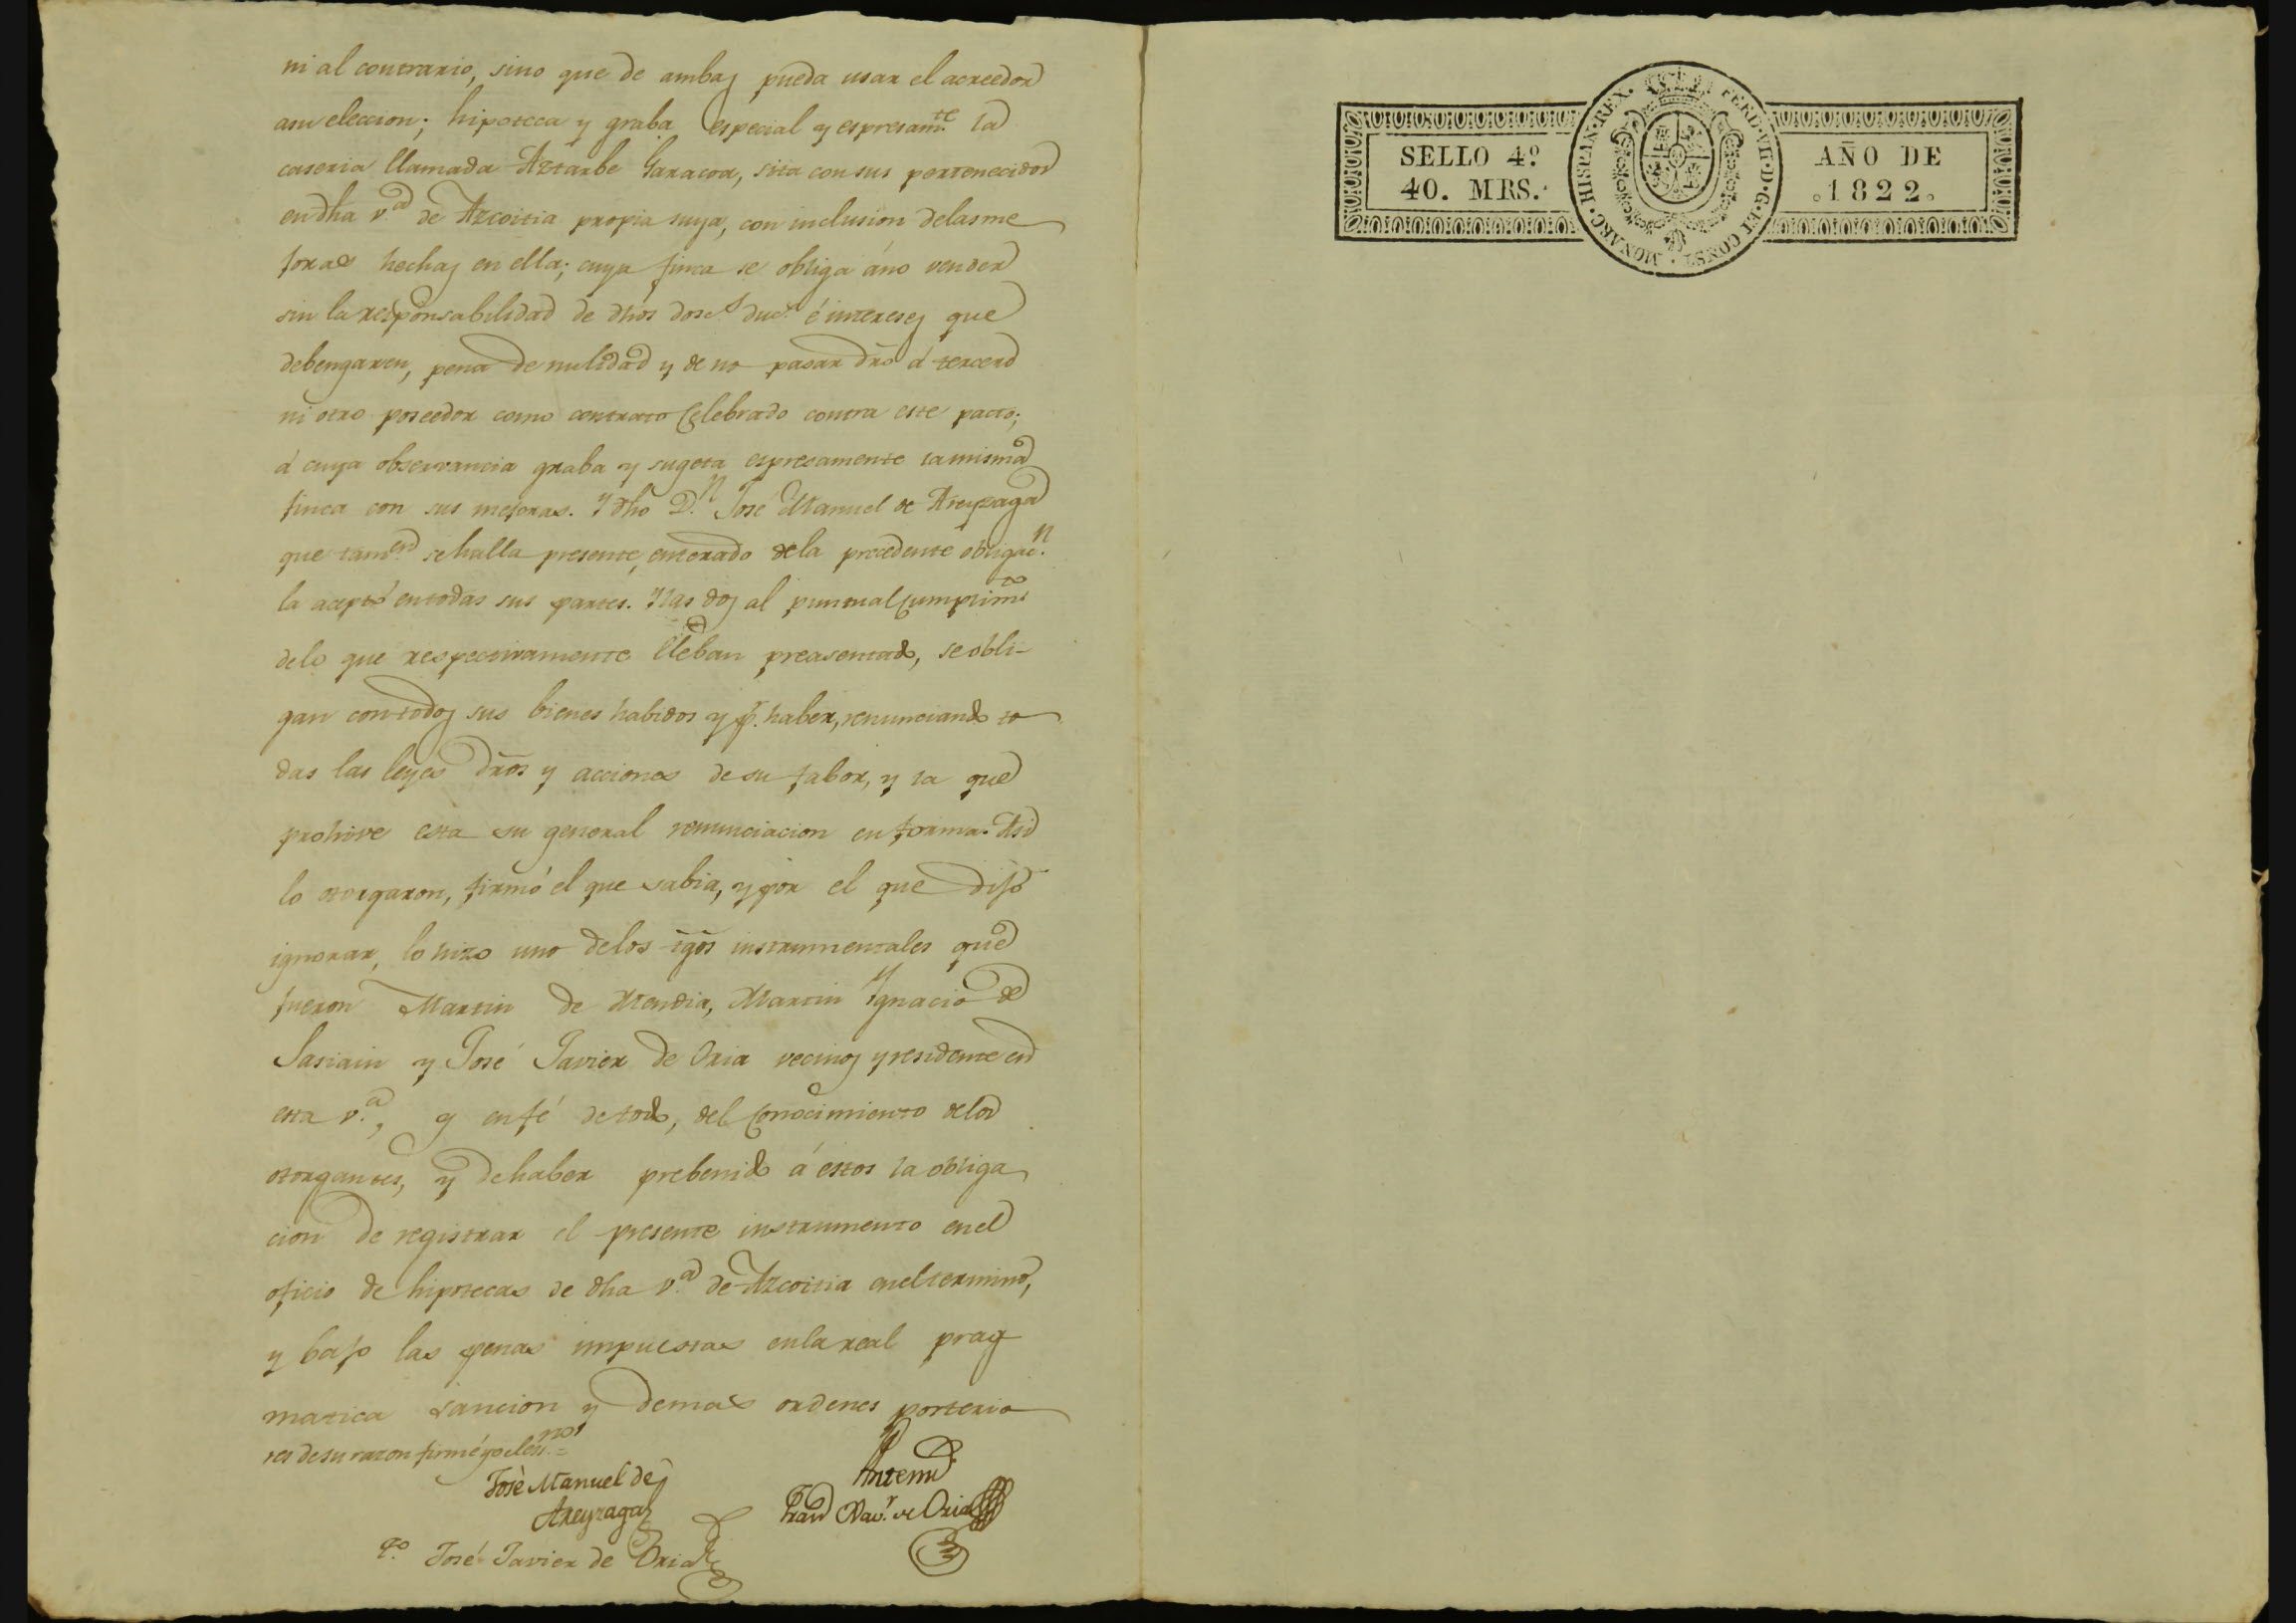 ni al contrario, sino que de ambas pueda usar el acreedor
asu eleccion; hipoteca y graba especial y espresam.te la
caseria llamada Aztarbe Garacoa, sita con sus pertenecidos
en dha v.a de Azcoitia propia suya, con inclusion delas me
joras hechas en ella; cuya finca se obliga áno vender
sin la responsabilidad de dhos dosc.s duc.s é intereses que
debengaren, pena de nulidad y de no pasar dro á tercero
ni otro poseedor como contrato Celebrado contra este pacto;
á cuya observancia graba y sugeta espresamente lamisma
finca con sus mejoras. Y dho D.n José Manuel de Areyzaga
que tam.en se halla presente, enterado dela precedente obligac.n
la aceptó entodas sus partes. Ylas dos al puntual Cumplim.to
delo que respectivamente lleban preasentado, se obli-
gan contodos sus bienes habidos y p.r haber, renunciando to
das las leyes dros y acciones de su fabor, y la que
prohive esta su general renunciacion en forma. Asi
lo otorgaron, firmó el que sabia, y por el que dijo
ignorar, lo hizo uno delos tgos instrumentales que
fueron Martin de Mendia, Martin Ygnacio de
Sasiain y José Javier de Oria vecinos y residente en
esta v.a, y enfé de todo, del Conocimiento delos
otorgantes, y de haber prebenido á estos la obliga
cion de registrar el presente instrumento en el
oficio de hipotecas de dha v.a de Azcoitia enel termino,
y bajo las penas impuestas enla real prag
matica sancion y demas ordenes posterio
res de su razon firmé yo el ess.no =
José Manuel de
Areyzaga
Antemi
Fran.co Xav.r de Oria
T.o José Javier de Oria
SELLO 4º
40. MRS.
FERD·VII·D·G·ET CONST·MONARC·HISPAN·REX·
AÑO DE
1822